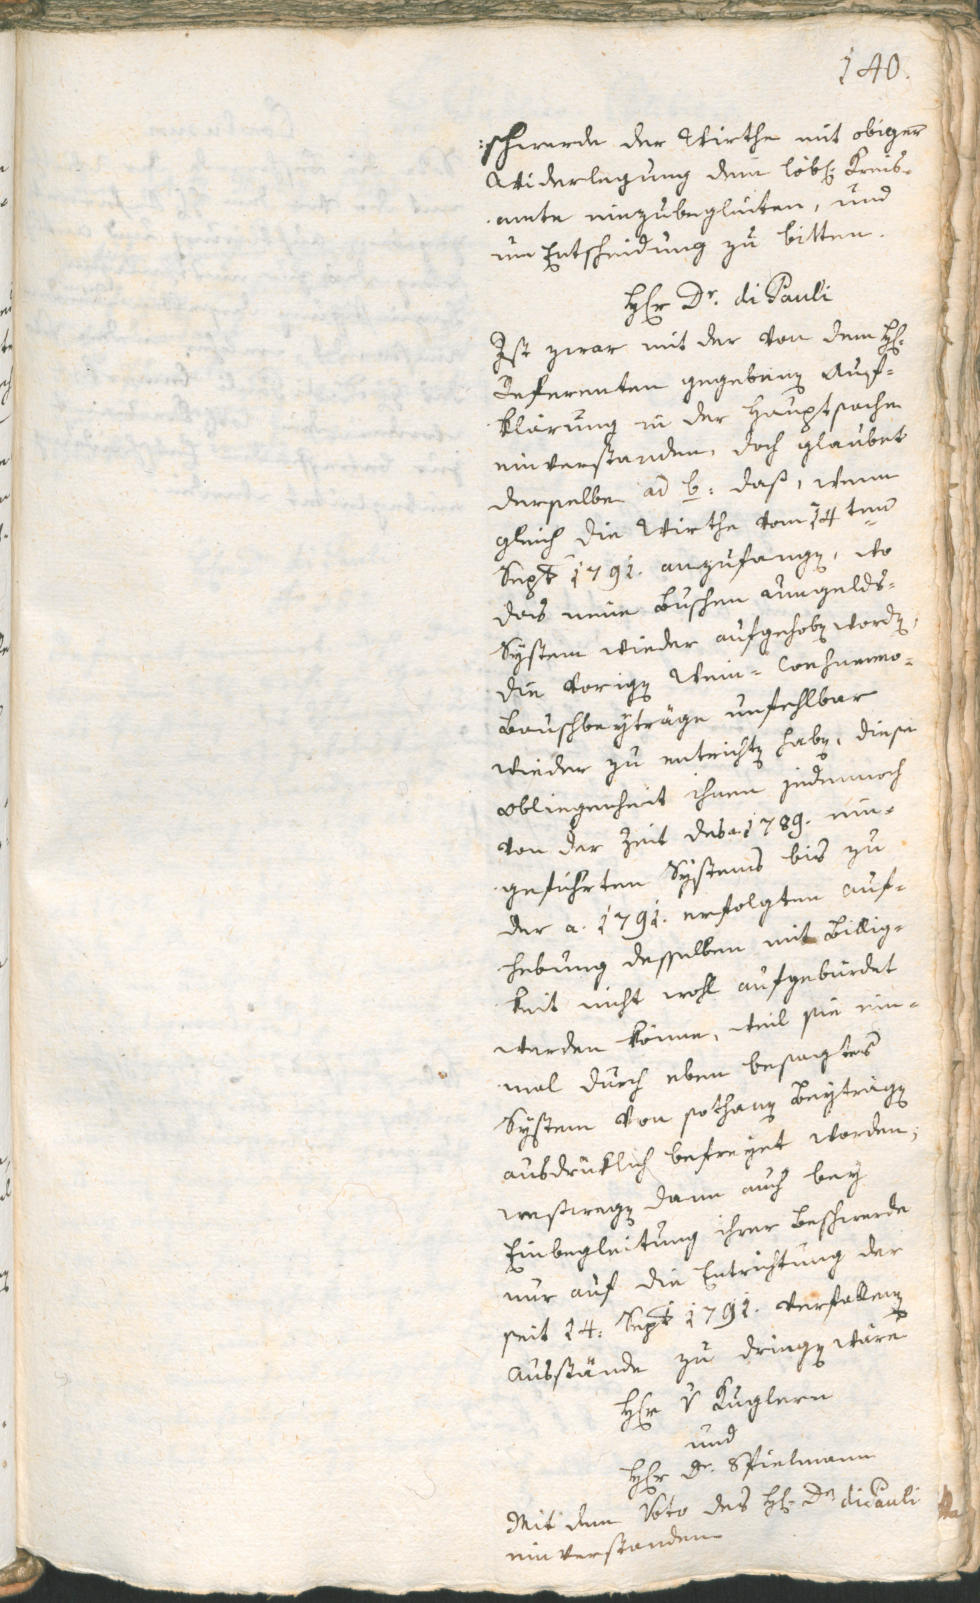 140.
:schwerde der Wirthe mit obiger
Widerlegung dem löbl: Kreis-
amte einzubegleiten, und
um Entscheidung zu bitten.
Hr Dr. di Pauli
Ist zwar mit der von dem H:
Referenten gegebenen Auf-
klärung in der Hauptsache
einverstanden, doch glaubet
derselbe ad b: daß, wenn
gleich die Wirthe vom 14ten
Sept 1791. anzufangen, wo
das neue Buschen Umgelds-
System wieder aufgehoben worden,
die vorigen Wein-
Bauschbeyträge unfehlbar
wieder zu entrichten haben, diese
Obliegenheit ihnen jedennoch
von der Zeit des a. 1789. ein-
geführten Systems bis zu
der a. 1791. erfolgten Auf-
hebung desselben mit Billig-
keit nicht wohl aufgebürdet
werden könne, weil sie ein-
mal durch eben besagtes
System von sothanen Beyträgen
ausdrüklich befreyet worden;
weßwegen dann auch bey
Einbegleitung ihrer Beschwerde
nur auf die Entrichtung der
seit 14: Sept 1791. verfallenen
Ausstände zu dringen wäre
Hr v Kuglern
und
Hr Dr. Spielmann
Mit dem Voto des H: Dr di Pauli
einverstanden